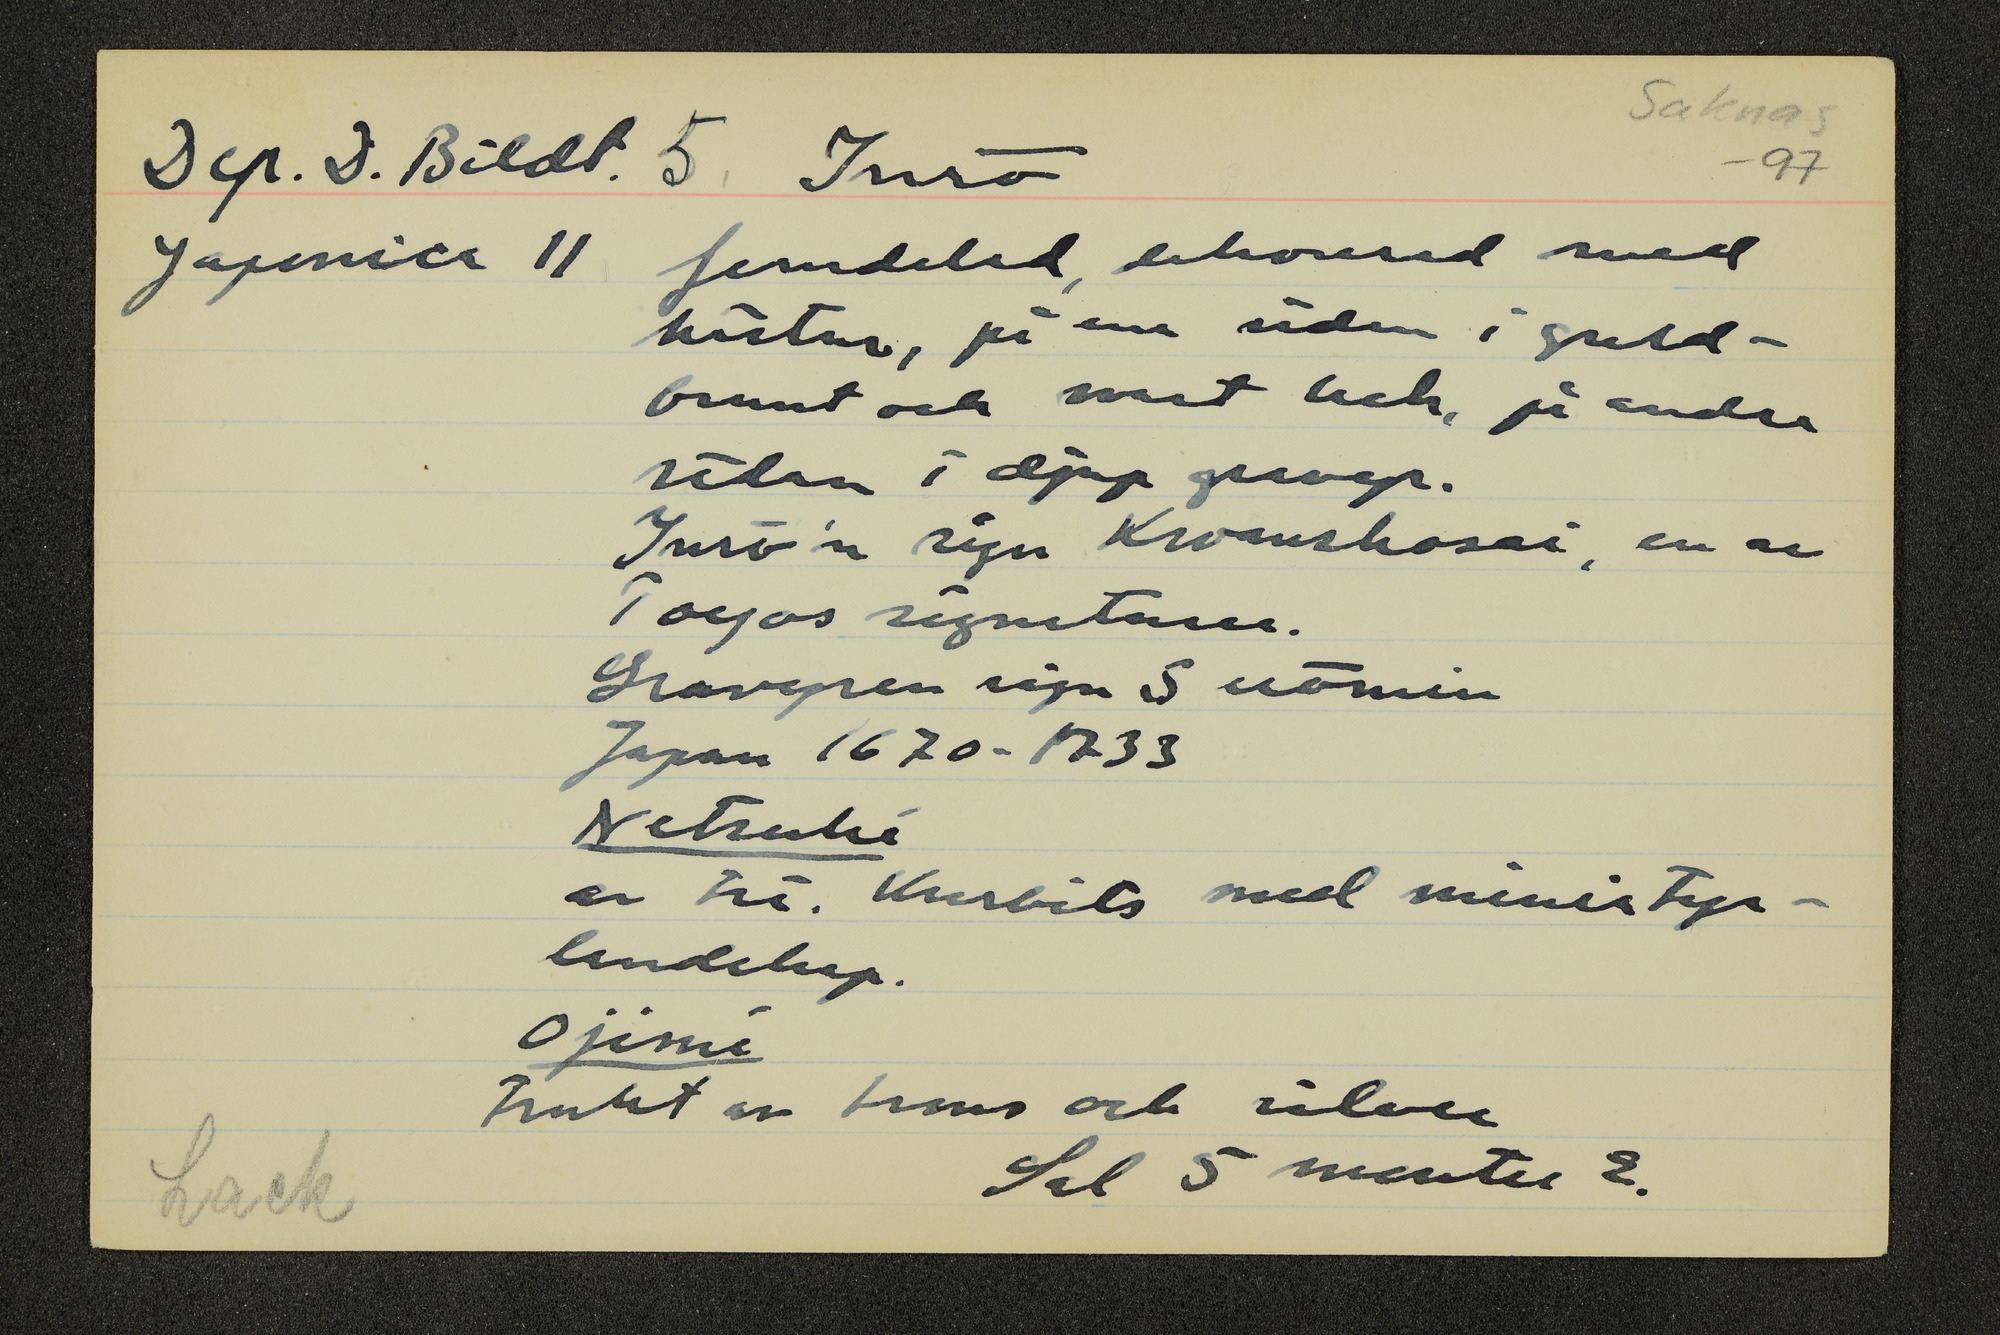 Saknas
-97
Dep. D. Bildt. 5. Inrō
Japonica 11 femdelad, dekorerad med
hästar, på ena sidan i guld-
brunt och svart lack, på andra
sidan i djup gravyr.
Inrō'n sign Kwanshosai, en av
Toyos signaturer.
Gravyren sign Sōmin
Japan 1670-1733
Netsuké
av trä. Kurbits med miniatyr-
landskap.
Ojimé
Frukt av brons och silver
Sal 5 monter E.
Lack